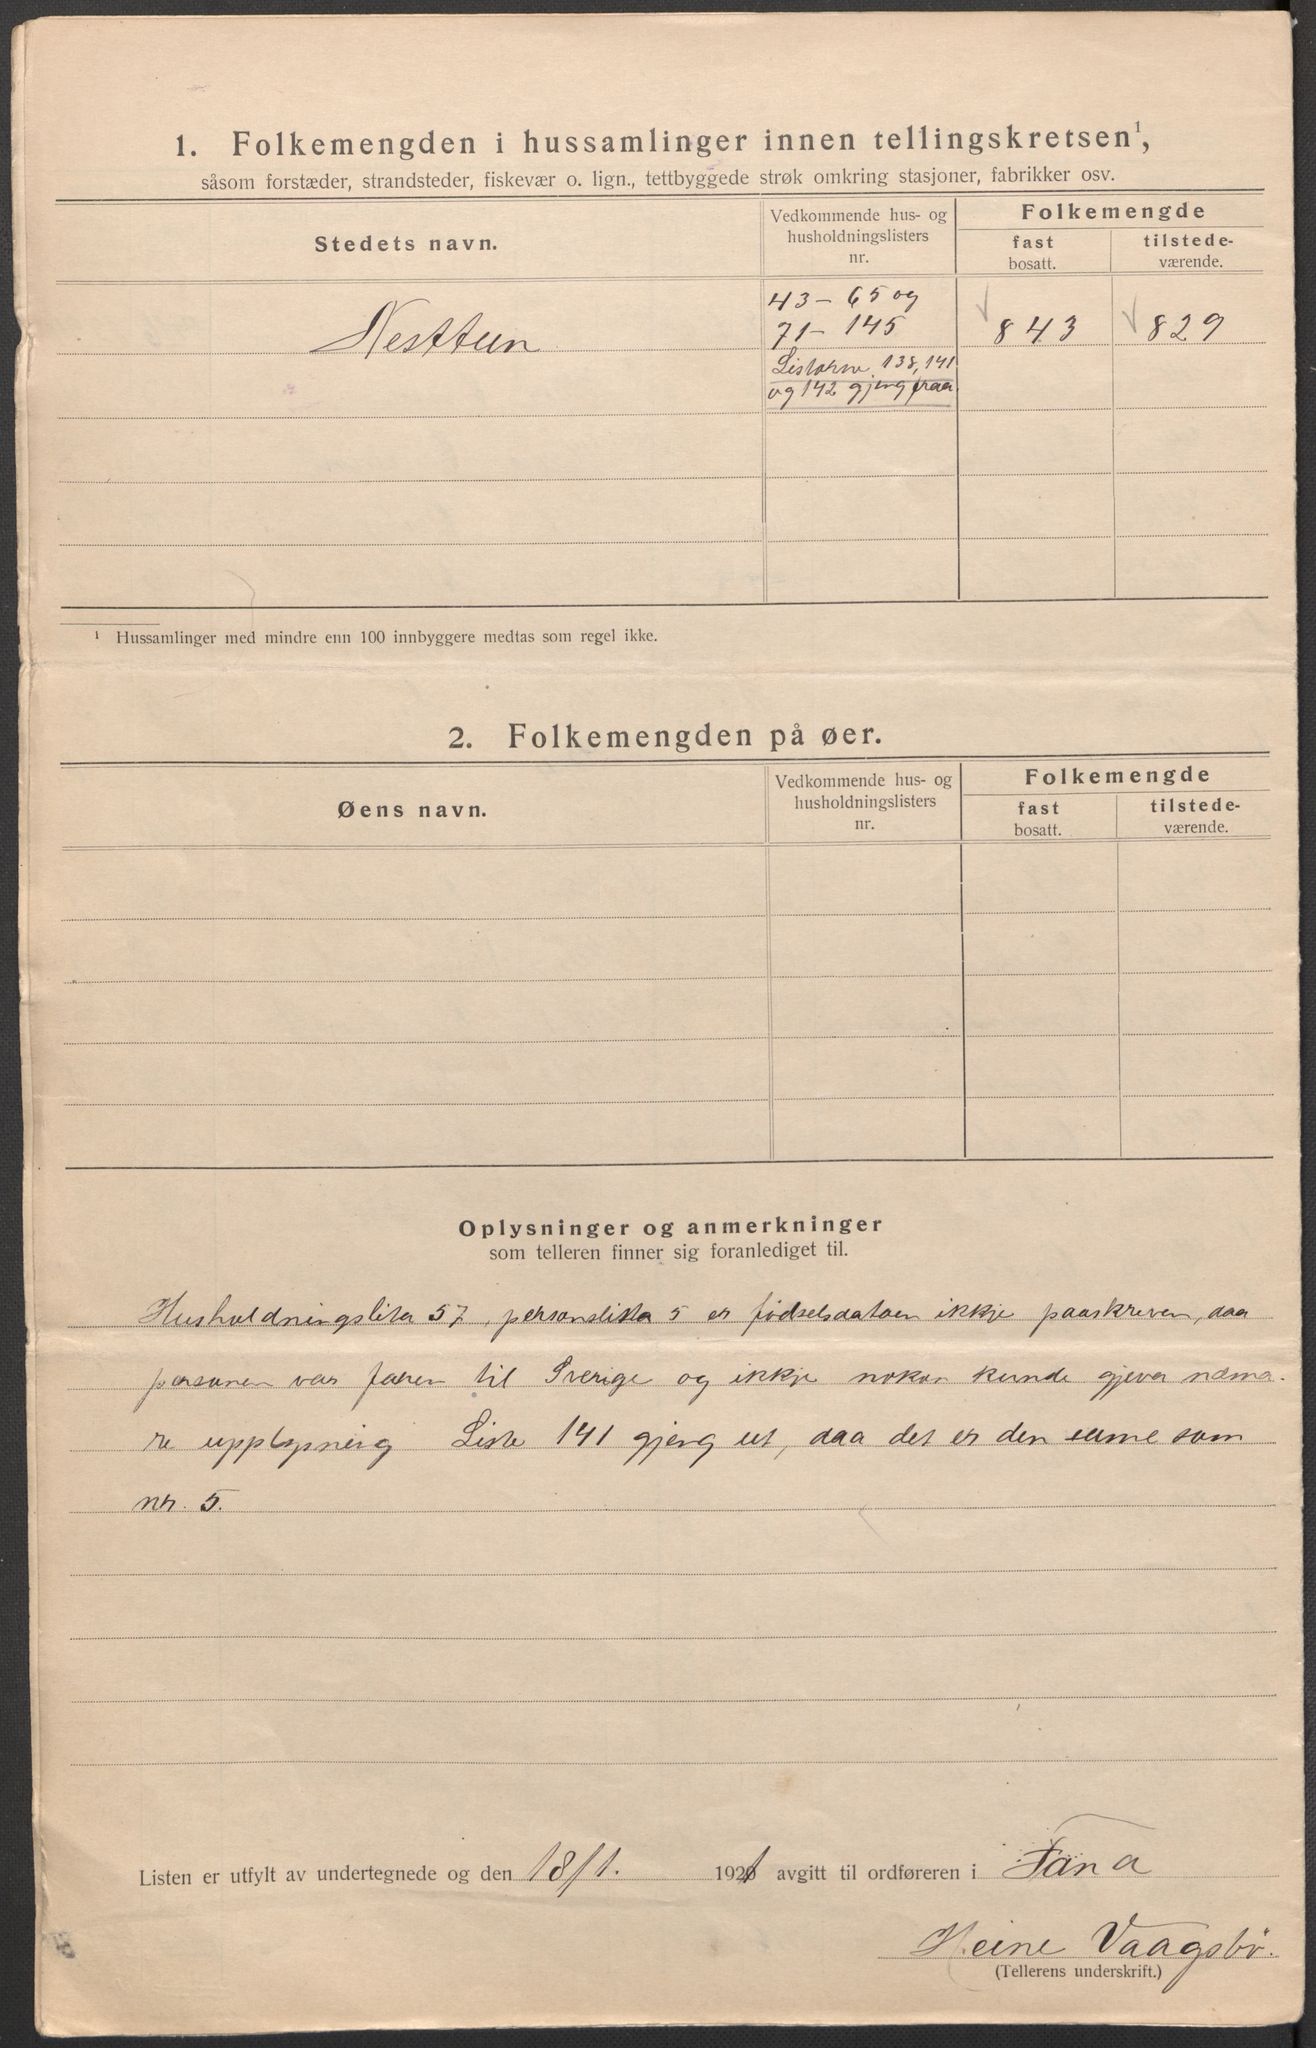 1. Folkemengden i hussamlinger innen tellingskretsen¹,
såsom forstæder, strandsteder, fiskevær o. lign., tettbyggede strøk omkring stasjoner, fabrikker osv.
Stedets navn.
Vedkommende hus- og
husholdningslisters
nr.
Folkemengde
fast
bosatt.
tilstede-
værende.
Nesttun
43 - 65 og
71 - 145
Listorne 138, 141
og 142 gjeng fraa
843
829
¹ Hussamlinger med mindre enn 100 innbyggere medtas som regel ikke.
2. Folkemengden på øer.
Øens navn.
Vedkommende hus- og
husholdningslisters
nr.
Folkemengde
fast
bosatt.
tilstede-
værende.
Oplysninger og anmerkninger
som telleren finner sig foranlediget til.
Husholdningslista 57, personslista 5 er fødselsdatoen ikkje paaskreven, daa
personen var faren til Sverige og ikkje nokon kunde gjeva næma-
re upplysning Liste 141 gjeng ut, daa det er den same som
nr. 5.
Listen er utfylt av undertegnede og den 18/1. 1921 avgitt til ordføreren i Fana
Heine Vaagsbö.
(Tellerens underskrift.)